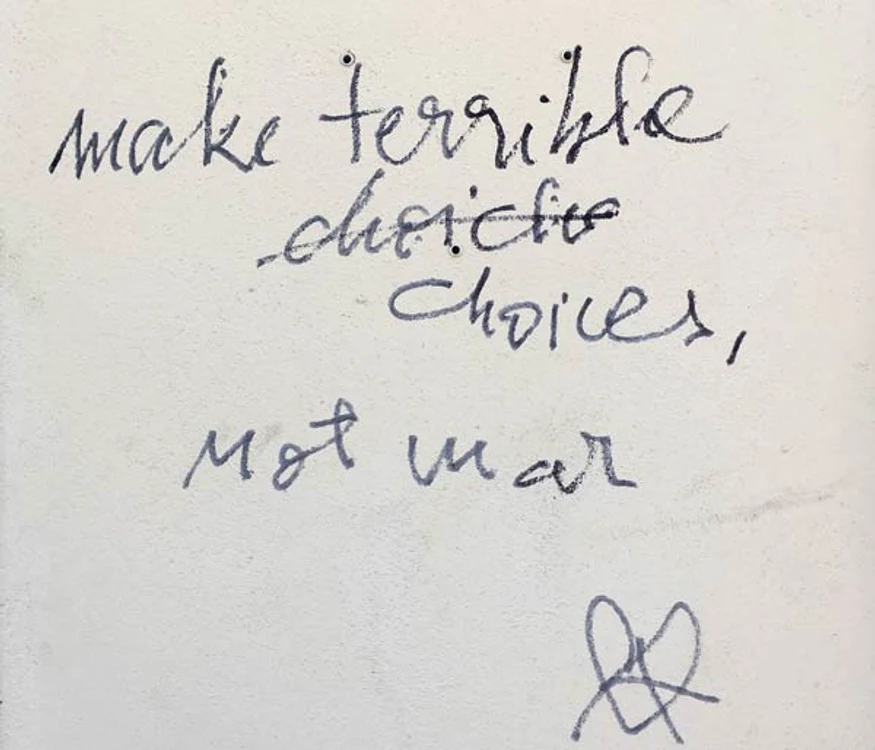 make terrible
choices,
not war